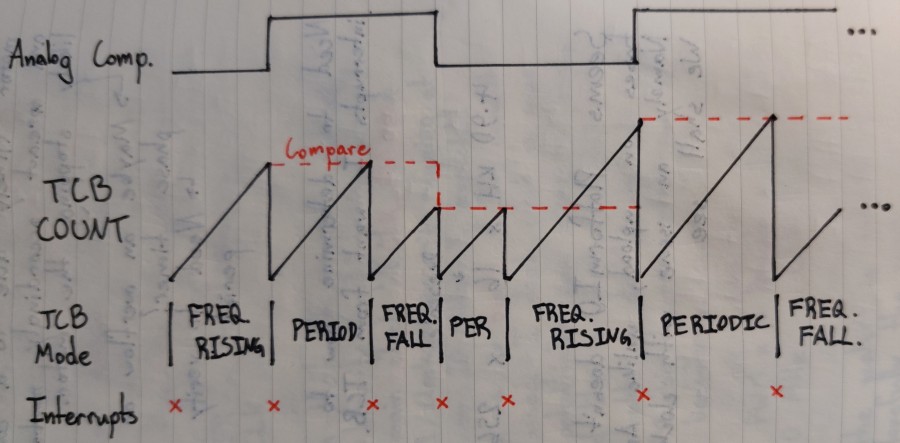 Analog Comp.
...
Compare
TCB
COUNT
...
TCB
Mode
FREQ
RISING
PERIOD.
FREQ.
FALL
PER
FREQ.
RISING
PERIODIC
FREQ.
FALL.
Interrupts
x x x x x x x